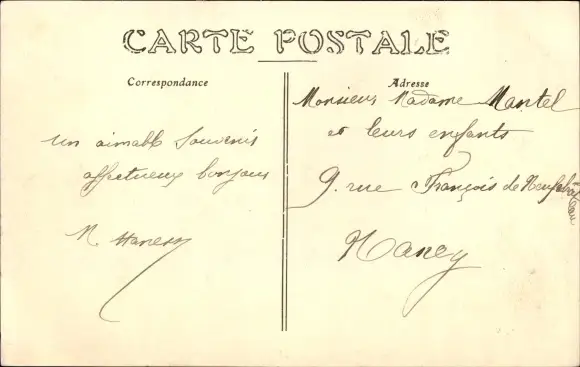 CARTE POSTALE
Correspondance
Adresse
Monsieur, Madame Mantel
et leurs enfants
9. rue François de Neufchâteau
Nancy
un aimable souvenir
affectueux bonjour